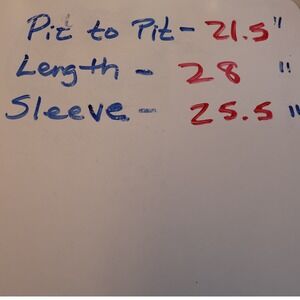 Pit to Pit - 21.5"
Length - 28 "
Sleeve - 25.5 "